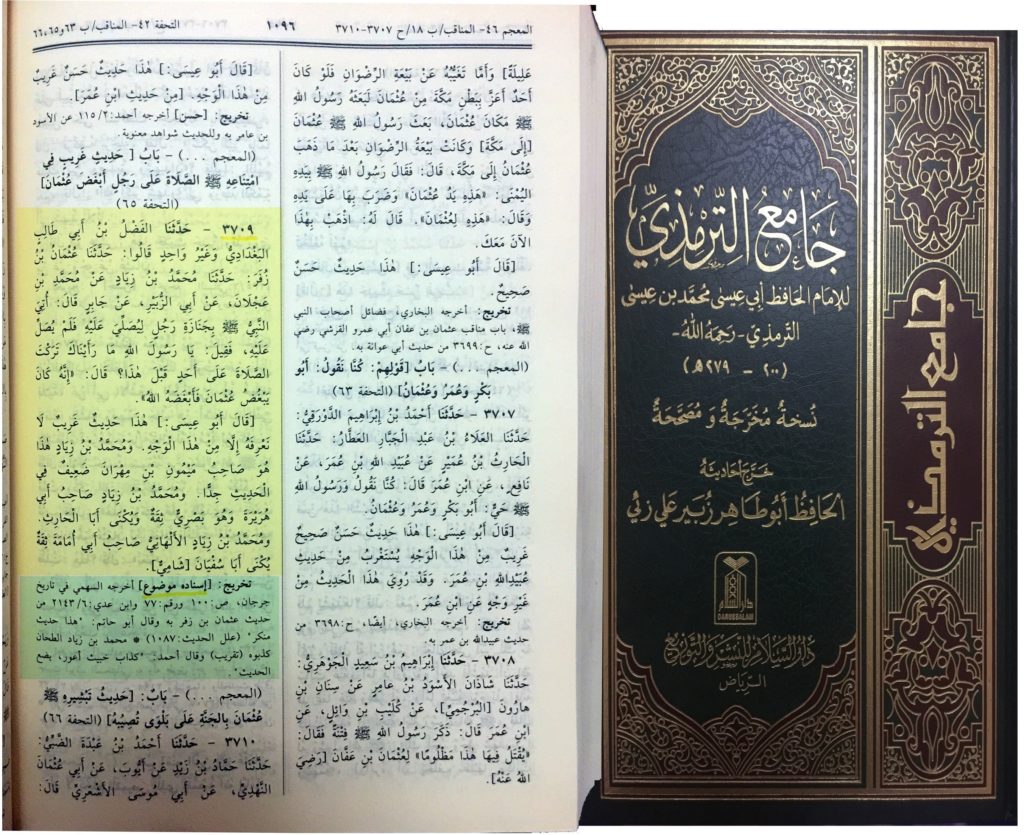 المعجم ٤٦- المناقب/ ب ١٨/ ح ٣٧٠٧-٣٧١٠
١٠٩٦
التحفة ٤٢- المناقب/ ب ٦٣و٦٥،٦٦
عَلِيلَةً] وَأَمَّا تَغَيُّبُهُ عَنْ بَيْعَةِ الرِّضْوَانِ فَلَوْ كَانَ
أَحَدٌ أَعَزَّ بِبَطْنِ مَكَّةَ مِنْ عُثْمَانَ لَبَعَثَهُ رَسُولُ اللهِ
ﷺ مَكَانَ عُثْمَانَ، بَعَثَ رَسُولُ اللهِ ﷺ عُثْمَانَ
[إِلَى مَكَّةَ] وَكَانَتْ بَيْعَةُ الرِّضْوَانِ بَعْدَ مَا ذَهَبَ
عُثْمَانُ إِلَى مَكَّةَ، قَالَ: فَقَالَ رَسُولُ اللهِ ﷺ بِيَدِهِ
الْيُمْنَى: «هَذِهِ يَدُ عُثْمَانَ» وَضَرَبَ بِهَا عَلَى يَدِهِ
وَقَالَ: «هَذِهِ لِعُثْمَانَ». قَالَ لَهُ: اذْهَبْ بِهَذَا
الْآنَ مَعَكَ.
[قَالَ أَبُو عِيسَى:] هٰذَا حَدِيثٌ حَسَنٌ
صَحِيحٌ.
تخريج: أخرجه البخاري، فضائل أصحاب النبي
ﷺ، باب مناقب عثمان بن عفان أبي عمرو القرشي رضي
الله عنه، ح:٣٦٩٩ من حديث أبي عوانة به.
(المعجم ...) - بَابُ [قَوْلِهِمْ: كُنَّا نَقُولُ: أَبُو
بَكْرٍ وَعُمَرُ وَعُثْمَانُ] (التحفة ٦٣)
٣٧٠٧ - حَدَّثَنَا أَحْمَدُ بْنُ إِبْرَاهِيمَ الدَّوْرَقِيُّ:
حَدَّثَنَا الْعَلَاءُ بْنُ عَبْدِ الْجَبَّارِ الْعَطَّارُ: حَدَّثَنَا
الْحَارِثُ بْنُ عُمَيْرٍ عَنْ عُبَيْدِ اللهِ بْنِ عُمَرَ، عَنْ
نَافِعٍ، عَنِ ابْنِ عُمَرَ قَالَ: كُنَّا نَقُولُ وَرَسُولُ اللهِ
ﷺ حَيٌّ: أَبُو بَكْرٍ وَعُمَرُ وَعُثْمَانُ.
[قَالَ أَبُو عِيسَى:] هٰذَا حَدِيثٌ حَسَنٌ صَحِيحٌ
غَرِيبٌ مِنْ هٰذَا الْوَجْهِ يُسْتَغْرَبُ مِنْ حَدِيثِ
عُبَيْدِاللهِ بْنِ عُمَرَ. وَقَدْ رُوِيَ هٰذَا الْحَدِيثُ مِنْ
غَيْرِ وَجْهٍ عَنِ ابْنِ عُمَرَ.
تخريج: أخرجه البخاري، أيضًا، ح:٣٦٩٨ من
حديث عبيدالله بن عمر به.
٣٧٠٨ - حَدَّثَنَا إِبْرَاهِيمُ بْنُ سَعِيدٍ الْجَوْهَرِيُّ:
حَدَّثَنَا شَاذَانُ الْأَسْوَدُ بْنُ عَامِرٍ عَنْ سِنَانِ بْنِ
هَارُونَ [الْبُرْجُمِيِّ]، عَنْ كُلَيْبِ بْنِ وَائِلٍ، عَنِ
ابْنِ عُمَرَ قَالَ: ذَكَرَ رَسُولُ اللهِ ﷺ فِتْنَةً فَقَالَ:
«يُقْتَلُ فِيهَا هٰذَا مَظْلُومًا» لِعُثْمَانَ بْنِ عَفَّانَ [رَضِيَ
اللهُ عَنْهُ].
[قَالَ أَبُو عِيسَى:] هٰذَا حَدِيثٌ حَسَنٌ غَرِيبٌ
مِنْ هٰذَا الْوَجْهِ. [مِنْ حَدِيثِ ابْنِ عُمَرَ].
تخريج: [حسن] أخرجه أحمد:٢/ ١١٥ عن الأسود
بن عامر به وللحديث شواهد معنوية.
(المعجم ...) - بَابُ [حَدِيثٍ غَرِيبٍ فِي
امْتِنَاعِهِ ﷺ الصَّلَاةَ عَلَى رَجُلٍ أَبْغَضَ عُثْمَانَ]
(التحفة ٦٥)
٣٧٠٩ - حَدَّثَنَا الْفَضْلُ بْنُ أَبِي طَالِبٍ
الْبَغْدَادِيُّ وَغَيْرُ وَاحِدٍ قَالُوا: حَدَّثَنَا عُثْمَانُ بْنُ
زُفَرَ: حَدَّثَنَا مُحَمَّدُ بْنُ زِيَادٍ عَنْ مُحَمَّدِ بْنِ
عَجْلَانَ، عَنْ أَبِي الزُّبَيْرِ، عَنْ جَابِرٍ قَالَ: أُتِيَ
النَّبِيُّ ﷺ بِجَنَازَةِ رَجُلٍ لِيُصَلِّيَ عَلَيْهِ فَلَمْ يُصَلِّ
عَلَيْهِ، فَقِيلَ: يَا رَسُولَ اللهِ مَا رَأَيْنَاكَ تَرَكْتَ
الصَّلَاةَ عَلَى أَحَدٍ قَبْلَ هٰذَا؟ قَالَ: «إِنَّهُ كَانَ
يَبْغَضُ عُثْمَانَ فَأَبْغَضَهُ اللهُ».
[قَالَ أَبُو عِيسَى:] هٰذَا حَدِيثٌ غَرِيبٌ لَا
نَعْرِفُهُ إِلَّا مِنْ هٰذَا الْوَجْهِ. وَمُحَمَّدُ بْنُ زِيَادٍ هٰذَا
هُوَ صَاحِبُ مَيْمُونِ بْنِ مِهْرَانَ ضَعِيفٌ فِي
الْحَدِيثِ جِدًّا. وَمُحَمَّدُ بْنُ زِيَادٍ صَاحِبُ أَبِي
هُرَيْرَةَ وَهُوَ بَصْرِيٌّ ثِقَةٌ وَيُكْنَى أَبَا الْحَارِثِ.
وَمُحَمَّدُ بْنُ زِيَادٍ الْأَلْهَانِيُّ صَاحِبُ أَبِي أُمَامَةَ ثِقَةٌ
يُكْنَى أَبَا سُفْيَانَ [شَامِيٌّ].
تخريج: [إسناده موضوع] أخرجه السهمي في تاريخ
جرجان، ص:١٠٠ ورقم:٧٧ وابن عدي:٦/ ٢١٤٣ من
حديث عثمان بن زفر به وقال أبو حاتم: "هذا حديث
منكر" (علل الحديث:١٠٨٧) * محمد بن زياد الطحان
كذبوه (تقريب) وقال أحمد: "كذاب خبيث أعور، يضع
الحديث".
(المعجم ...) - بَابُ: [حَدِيثِ تَبْشِيرِهِ ﷺ
عُثْمَانَ بِالْجَنَّةِ عَلَى بَلْوَى تُصِيبُهُ] (التحفة ٦٦)
٣٧١٠ - حَدَّثَنَا أَحْمَدُ بْنُ عَبْدَةَ الضَّبِّيُّ:
حَدَّثَنَا حَمَّادُ بْنُ زَيْدٍ عَنْ أَيُّوبَ، عَنْ أَبِي عُثْمَانَ
النَّهْدِيِّ، عَنْ أَبِي مُوسَى الْأَشْعَرِيِّ قَالَ:
جَامِعُ التِّرْمِذِيِّ
لِلإمَامِ الحَافِظِ أَبِي عِيسَى مُحَمَّد بن عِيسَى
التِّرمِذي - رَحِمَهُ اللهُ -
(٢٠٠ - ٢٧٩ هـ)
نُسخَةٌ مُخَرَّجَةٌ وَ مُصَحَّحَةٌ
خَرَّجَ أَحَادِيثَهُ
الحَافِظ أَبُو طَاهِر زُبَير عَلي زَئي
دار السلام
DARUSSALAM
دَارُ السَّلَامِ لِلنَّشْرِ وَالتَّوزِيعِ
الرِّيَاض
جامع الترمذي